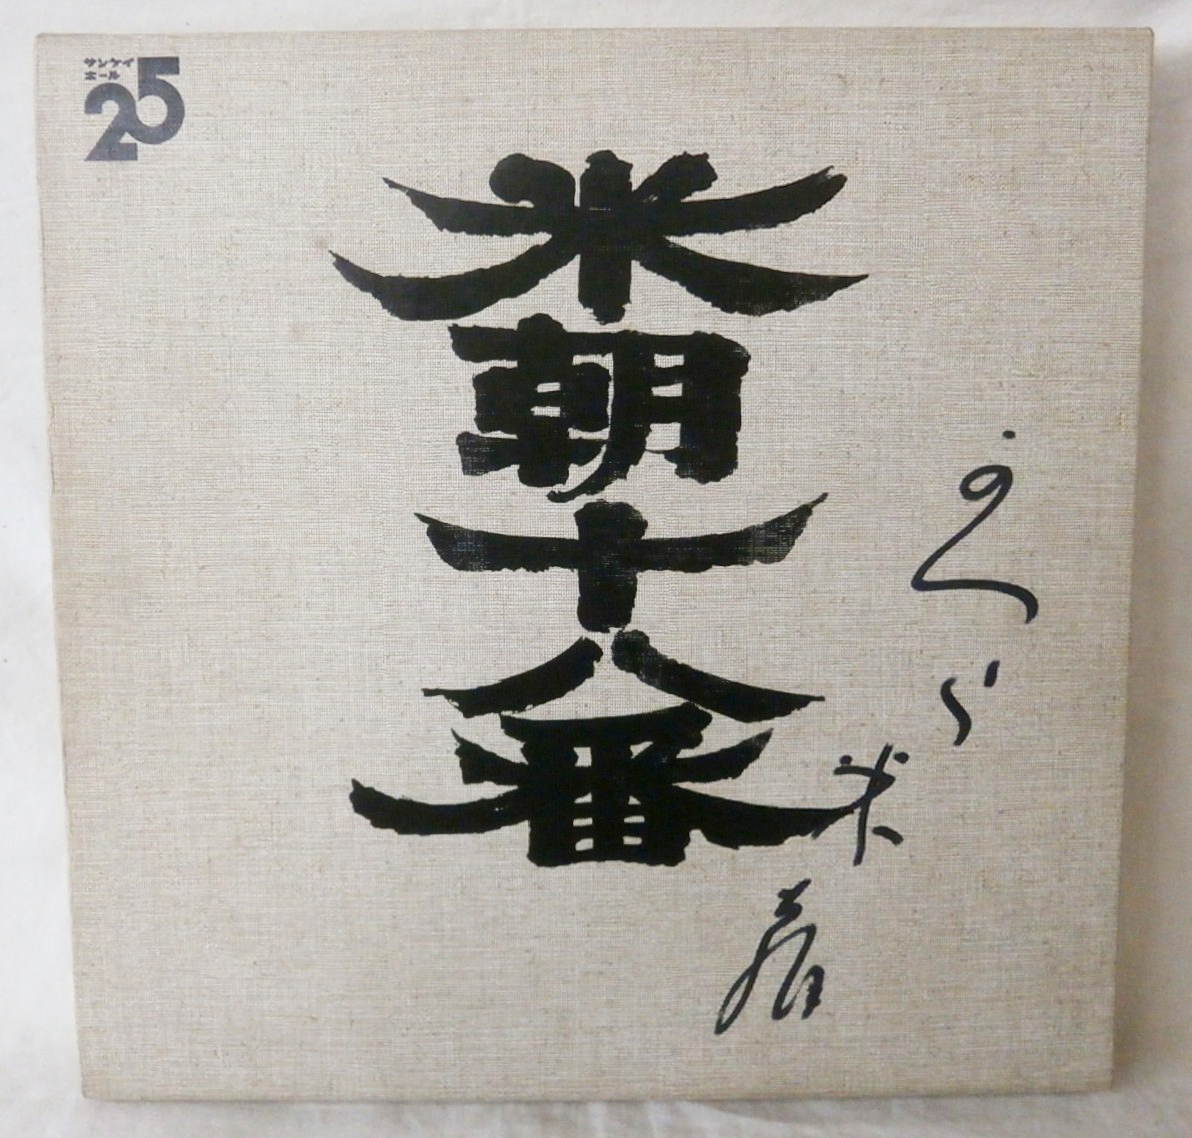 サンケイ
ホール
25
米朝十八番
米